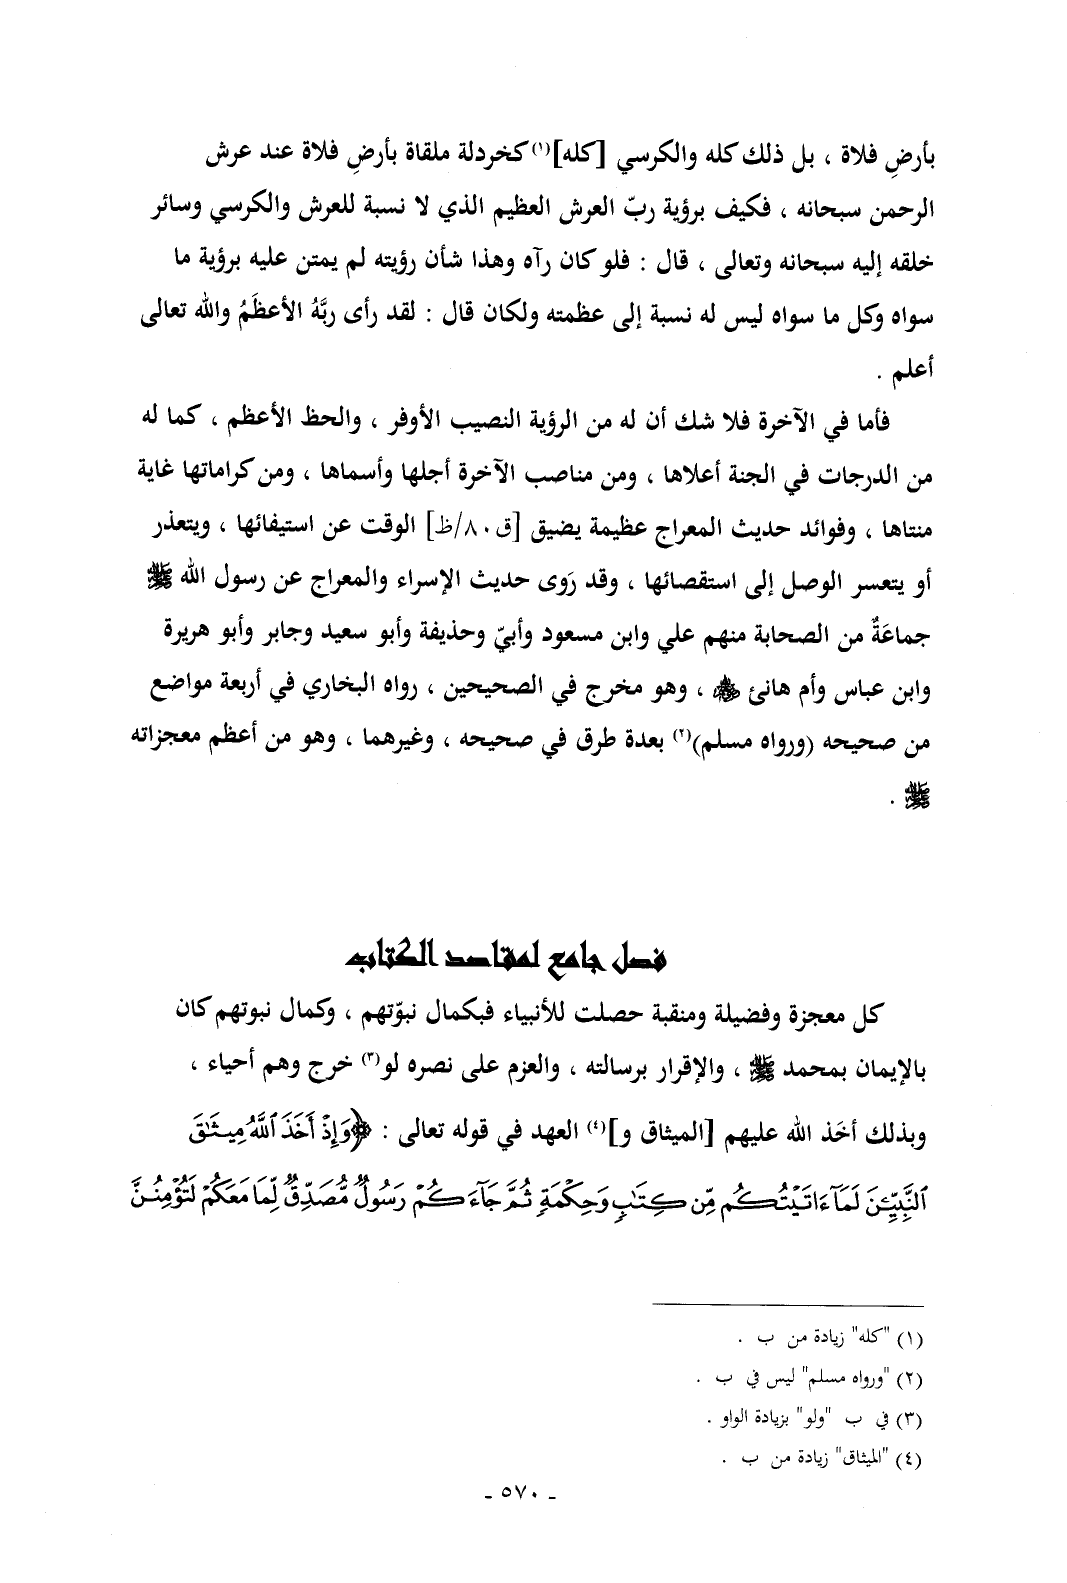 بأرضِ فلاة ، بل ذلك كله والكرسي [كله](١) كخردلة ملقاة بأرضِ فلاة عند عرش
الرحمن سبحانه ، فكيف برؤية ربّ العرش العظيم الذي لا نسبة للعرش والكرسي وسائر
خلقه إليه سبحانه وتعالى ، قال : فلو كان رآه وهذا شأن رؤيته لم يمتن عليه برؤية ما
سواه وكل ما سواه ليس له نسبة إلى عظمته ولكان قال : لقد رأى ربَّهُ الأعظَمُ والله تعالى
أعلم .
فأما في الآخرة فلا شك أن له من الرؤية النصيب الأوفر ، والحظ الأعظم ، كما له
من الدرجات في الجنة أعلاها ، ومن مناصب الآخرة أجلها وأسماها ، ومن كراماتها غاية
منتاها ، وفوائد حديث المعراج عظيمة يضيق [ق٨٠/ظ] الوقت عن استيفائها ، ويتعذر
أو يتعسر الوصل إلى استقصائها ، وقد رَوى حديث الإسراء والمعراج عن رسول الله ﷺ
جماعَةٌ من الصحابة منهم علي وابن مسعود وأبيّ وحذيفة وأبو سعيد وجابر وأبو هريرة
وابن عباس وأم هانئ ﷺ ، وهو مخرج في الصحيحين ، رواه البخاري في أربعة مواضع
من صحيحه (ورواه مسلم)(٢) بعدة طرق في صحيحه ، وغيرهما ، وهو من أعظم معجزاته
ﷺ .
فصل جامع لمقاصد الكتاب
كل معجزة وفضيلة ومنقبة حصلت للأنبياء فبكمال نبوّتهم ، وكمال نبوتهم كان
بالإيمان بمحمد ﷺ ، والإقرار برسالته ، والعزم على نصره لو(٣) خرج وهم أحياء ،
وبذلك أخَذ الله عليهم [الميثاق و](٤) العهد في قوله تعالى : ﴿وَإِذْ أَخَذَ ٱللَّهُ مِيثَـٰقَ
ٱلنَّبِيِّـۧنَ لَمَآ ءَاتَيْتُكُم مِّن كِتَـٰبٍ وَحِكْمَةٍ ثُمَّ جَآءَكُمْ رَسُولٌ مُّصَدِّقٌ لِّمَا مَعَكُمْ لَتُؤْمِنُنَّ
(١) "كله" زيادة من ب .
(٢) "ورواه مسلم" ليس في ب .
(٣) في ب "ولو" بزيادة الواو .
(٤) "الميثاق" زيادة من ب .
- ٥٧٠ -